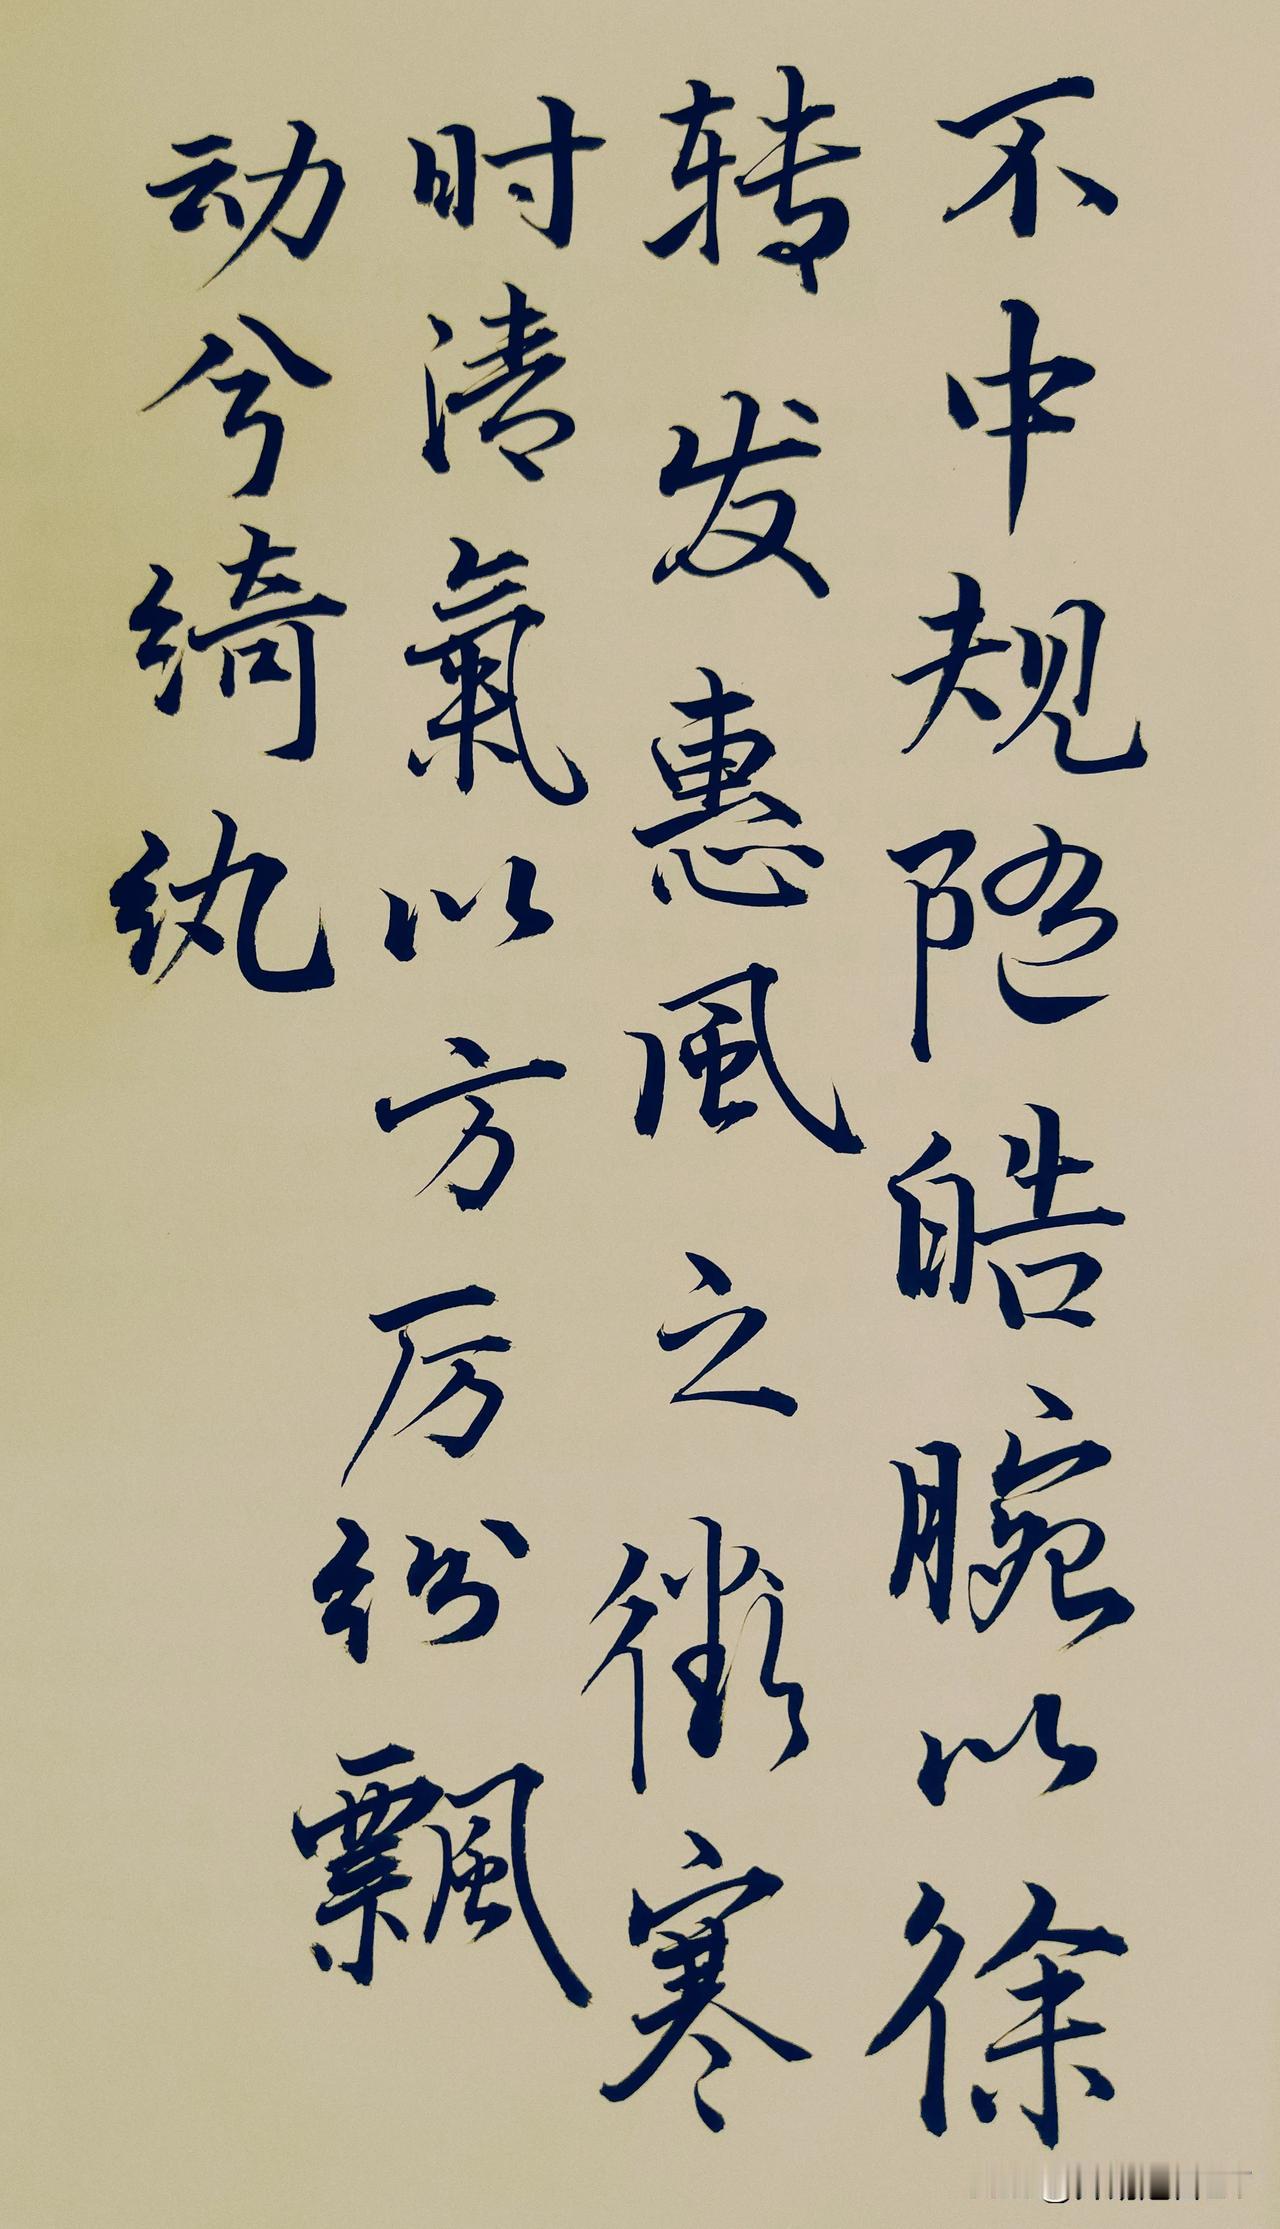 不中规随皓腕以徐
转发惠風之微寒
时清氣以方厉纷飘
动兮绮纨